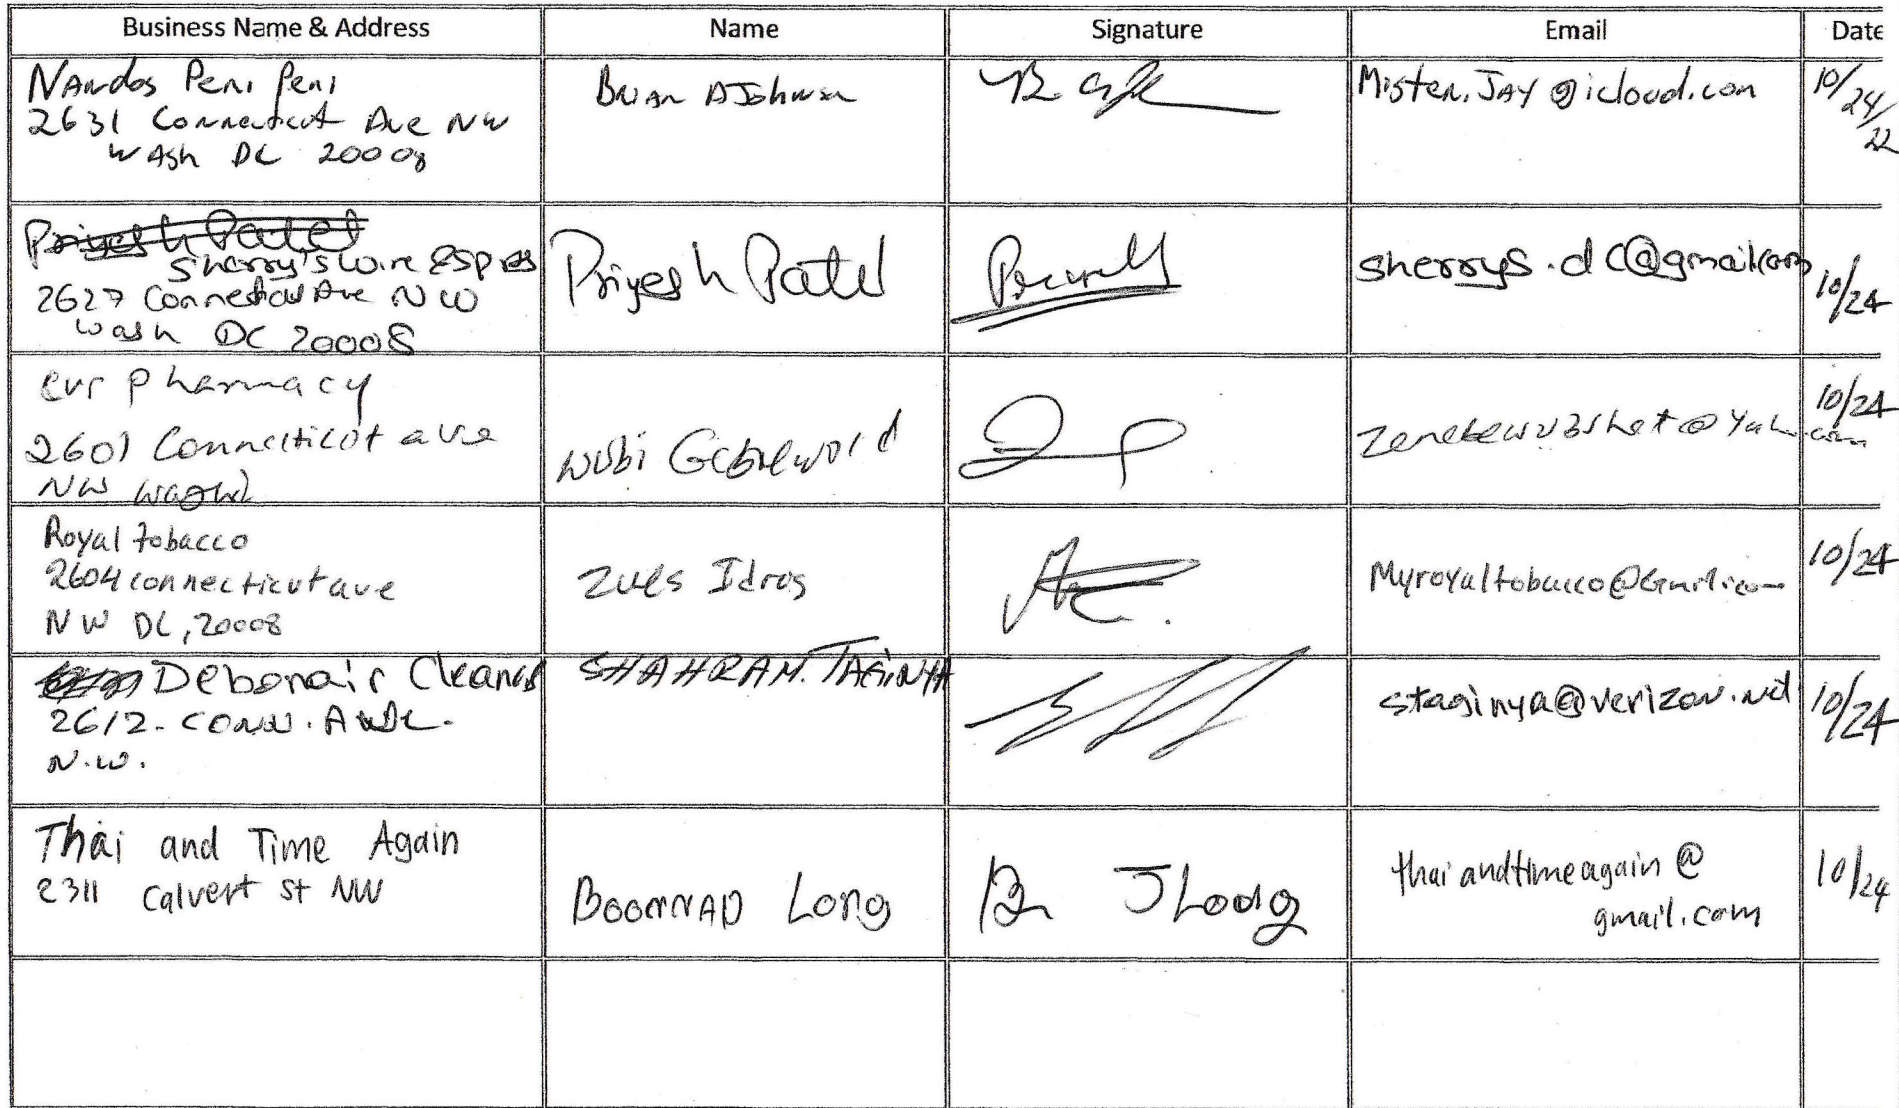 Business Name & Address Name Signature Email Date
Nandos Peri Peri
2631 Connecticut Ave NW
Wash DC 20008
Brian A Johnson
Mister.Jay@icloud.com
10/24/22
Priyesh Patel
Sherry's Wine Espres
2627 Connecticut Ave NW
Wash DC 20008
Priyesh Patel
sherrys.dc@gmail.com
10/24
cvs pharmacy
2601 Connecticut ave
NW
Wubi
10/24
Royal tobacco
2604 connecticut ave
NW DC, 20008
Zues Idros
Myroyaltobacco@Gmail.com
10/24
Debonair Cleaners
2612. CONN. AVE.
N.W.
SHAHRAM. TAGINYA
staginya@verizon.net
10/24
Thai and Time Again
2311 Calvert St NW
Boonnad Long
J Long
thaiandtimeagain@
gmail.com
10/24